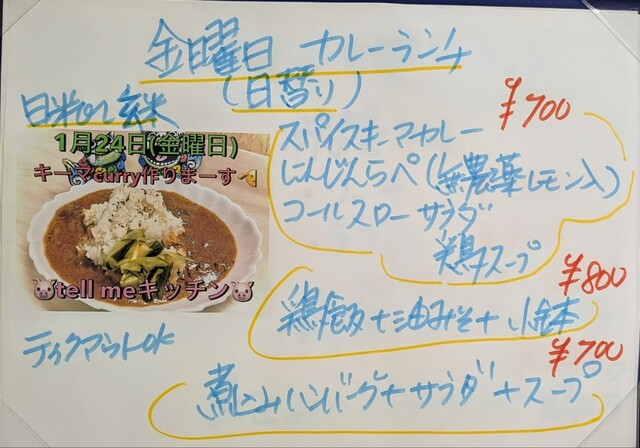 金曜日 カレーランチ
(日替り)
白米or玄米
¥700
スパイスキーマカレー
にんじんらぺ(無農薬レモン入)
コールスローサラダ
鶏スープ
1月24日(金曜日)
キーマcurry作りまーす
tell meキッチン
¥800
鶏飯+油みそ+小鉢
¥700
煮込みハンバーグ+サラダ+スープ
テイクアウトok